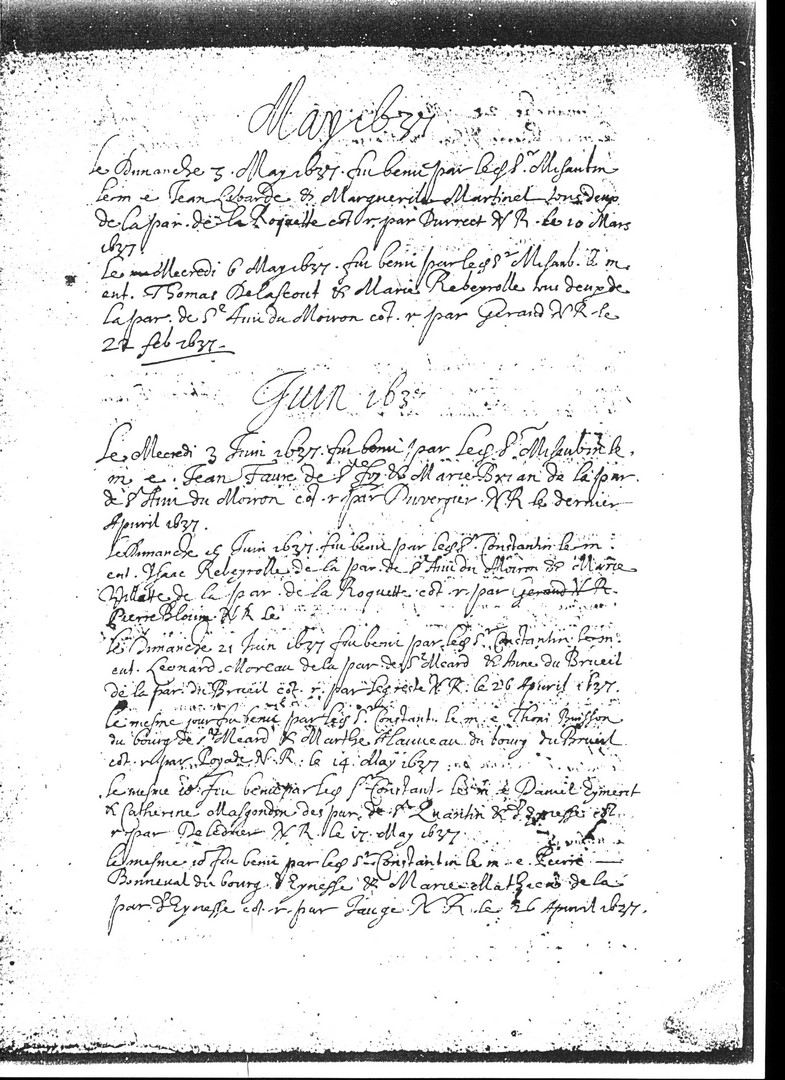 May 1637
le Dimanche 3. May 1637. fu beni par led Sr Misaubin
le m e Jean Labarde & Marguerite Martinel tous deux
de la par. de la Roquette cot. r. par Durrect N R. le 10 Mars
1637.
Le Mecredi 6 May 1637. fu beni par led Sr Misaub. le m
ent. Thomas Delascout & Marie Rebeyrolle tous deux de
la par. de St Avit du Moiron cot. r. par Gerand N R. le
27 feb 1637.
Juin 1637
Le Mecredi 3 Juin 1637. fu beni par led Sr Misaubin le
m e. Jean Faure de Ste Foy & Marie Brian de la par.
de St Avit du Moiron cot. r. par Duvergier N R le dernier
Apvril 1637.
le Dimanche 15 Juin 1637. fu beni par led Sr Constantin le m.
ent. Isaac Rebeyrolle de la par. de St Avit du Moiron & Marie
Villatte de la par. de la Roquette cot. r. par Gerand N R.
Pierre Blouin N R le
le Dimanche 21 Juin 1637 fu beni par led Sr Constantin le m
ent. Leonard Moreau de la par de St Meard & Anne du Brueil
de la par. du Brueil cot. r. par N R. le 26 Apvril 1637.
le mesme jour fu beni par led Sr Constant. le m. e Thoni Buisson
du bourg de St Meard & Marthe Flauveau du bourg du Brueil
cot. r. par Royade N. R. le 14 May 1637
le mesme io fu beni par led Sr Constant. le m e Daniel Eyment
& Catherine Masgondon des par. de St Quantin & d'Eynesse cot.
r. par N R. le 17 May 1637
le mesme io fu beni par led Sr Constantin le m. e Pierre
Bonneval du bourg d'Eynesse & Marie Mathieu de la
par. d'Eynesse cot. r. par Jauge N R. le 26 Apvril 1637.